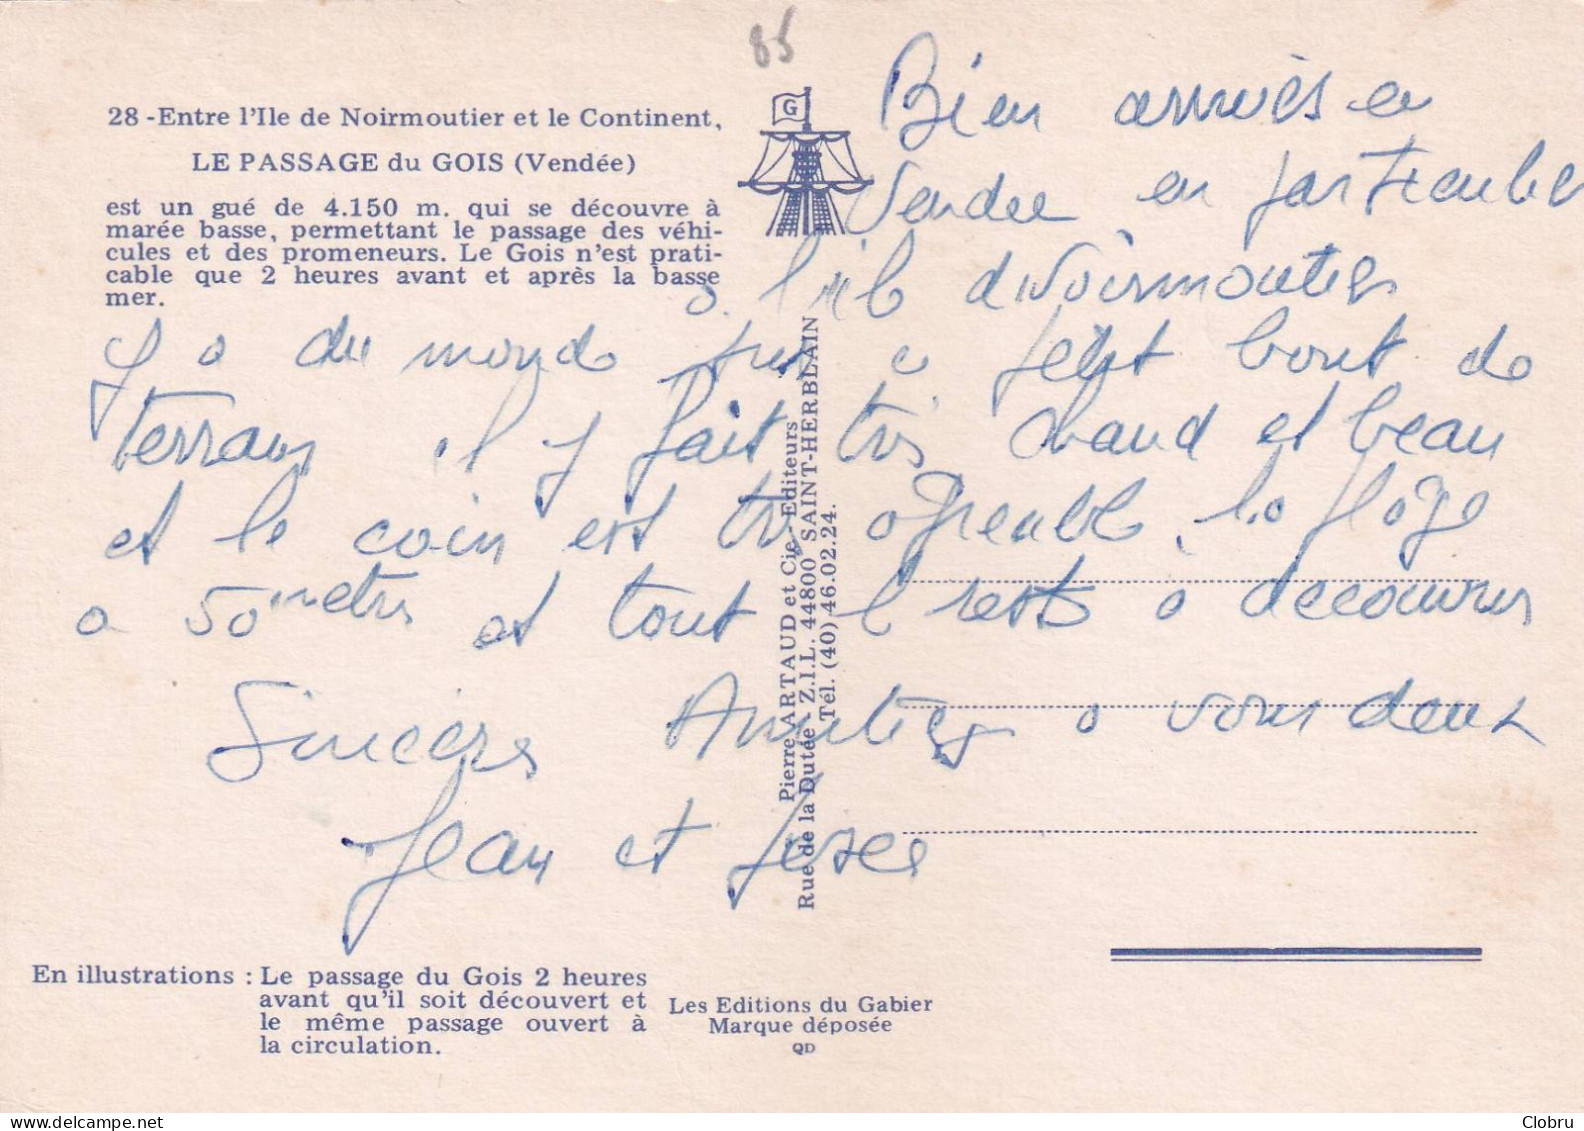 85
28 - Entre l'Ile de Noirmoutier et le Continent,
LE PASSAGE du GOIS (Vendée)
est un gué de 4.150 m. qui se découvre à
marée basse, permettant le passage des véhi-
cules et des promeneurs. Le Gois n'est prati-
cable que 2 heures avant et après la basse
mer.
G
Bien arrivés en
Vendee en particulier
a l'ile d Noirmoutier
y a du monde sur c petit bout de
terrain il y fait très chaud et beau
et le coin est très agreable. la plage
a 50 metres et tout l reste a decouvrir
Sincères Amitiés a vous deux
Jean et Josee
Pierre ARTAUD et Cie - Editeurs
Rue de la Dutée - Z.I.L. 44800 SAINT-HERBLAIN
Tél. (40) 46.02.24.
En illustrations : Le passage du Gois 2 heures
avant qu'il soit découvert et
le même passage ouvert à
la circulation.
Les Editions du Gabier
Marque déposée
QD
delcampe.net
Clobru